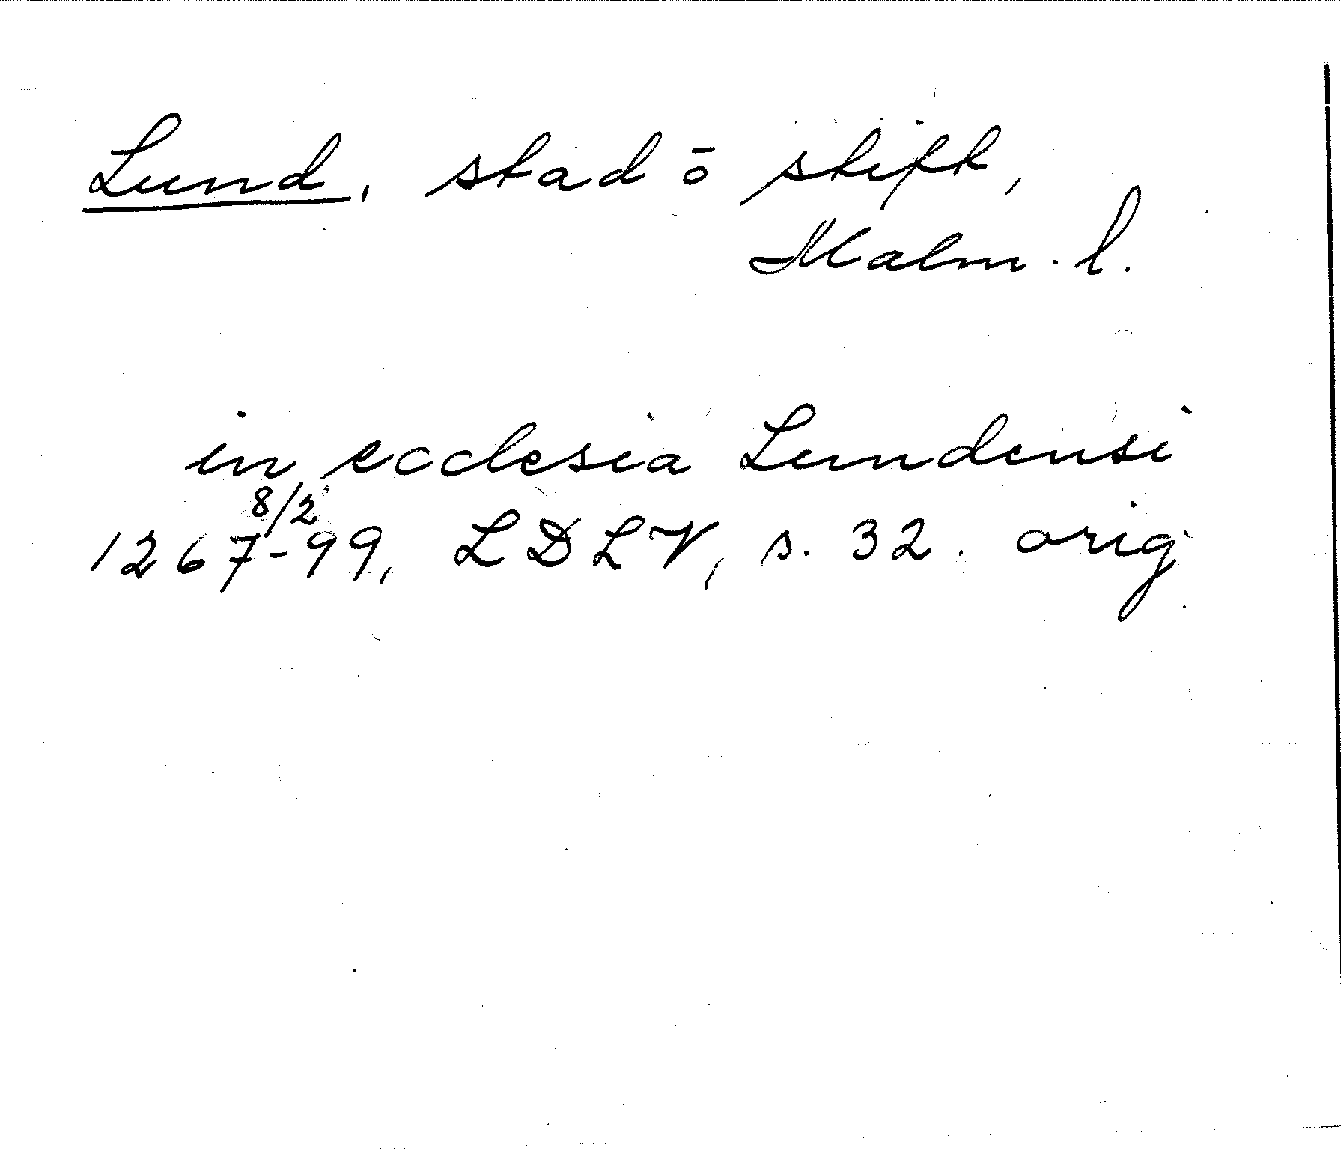 Lund, stad ō stift,
Malm. l.
in ecclesia Lundensi
8/2
1267-99, LDLV, s. 32. orig.